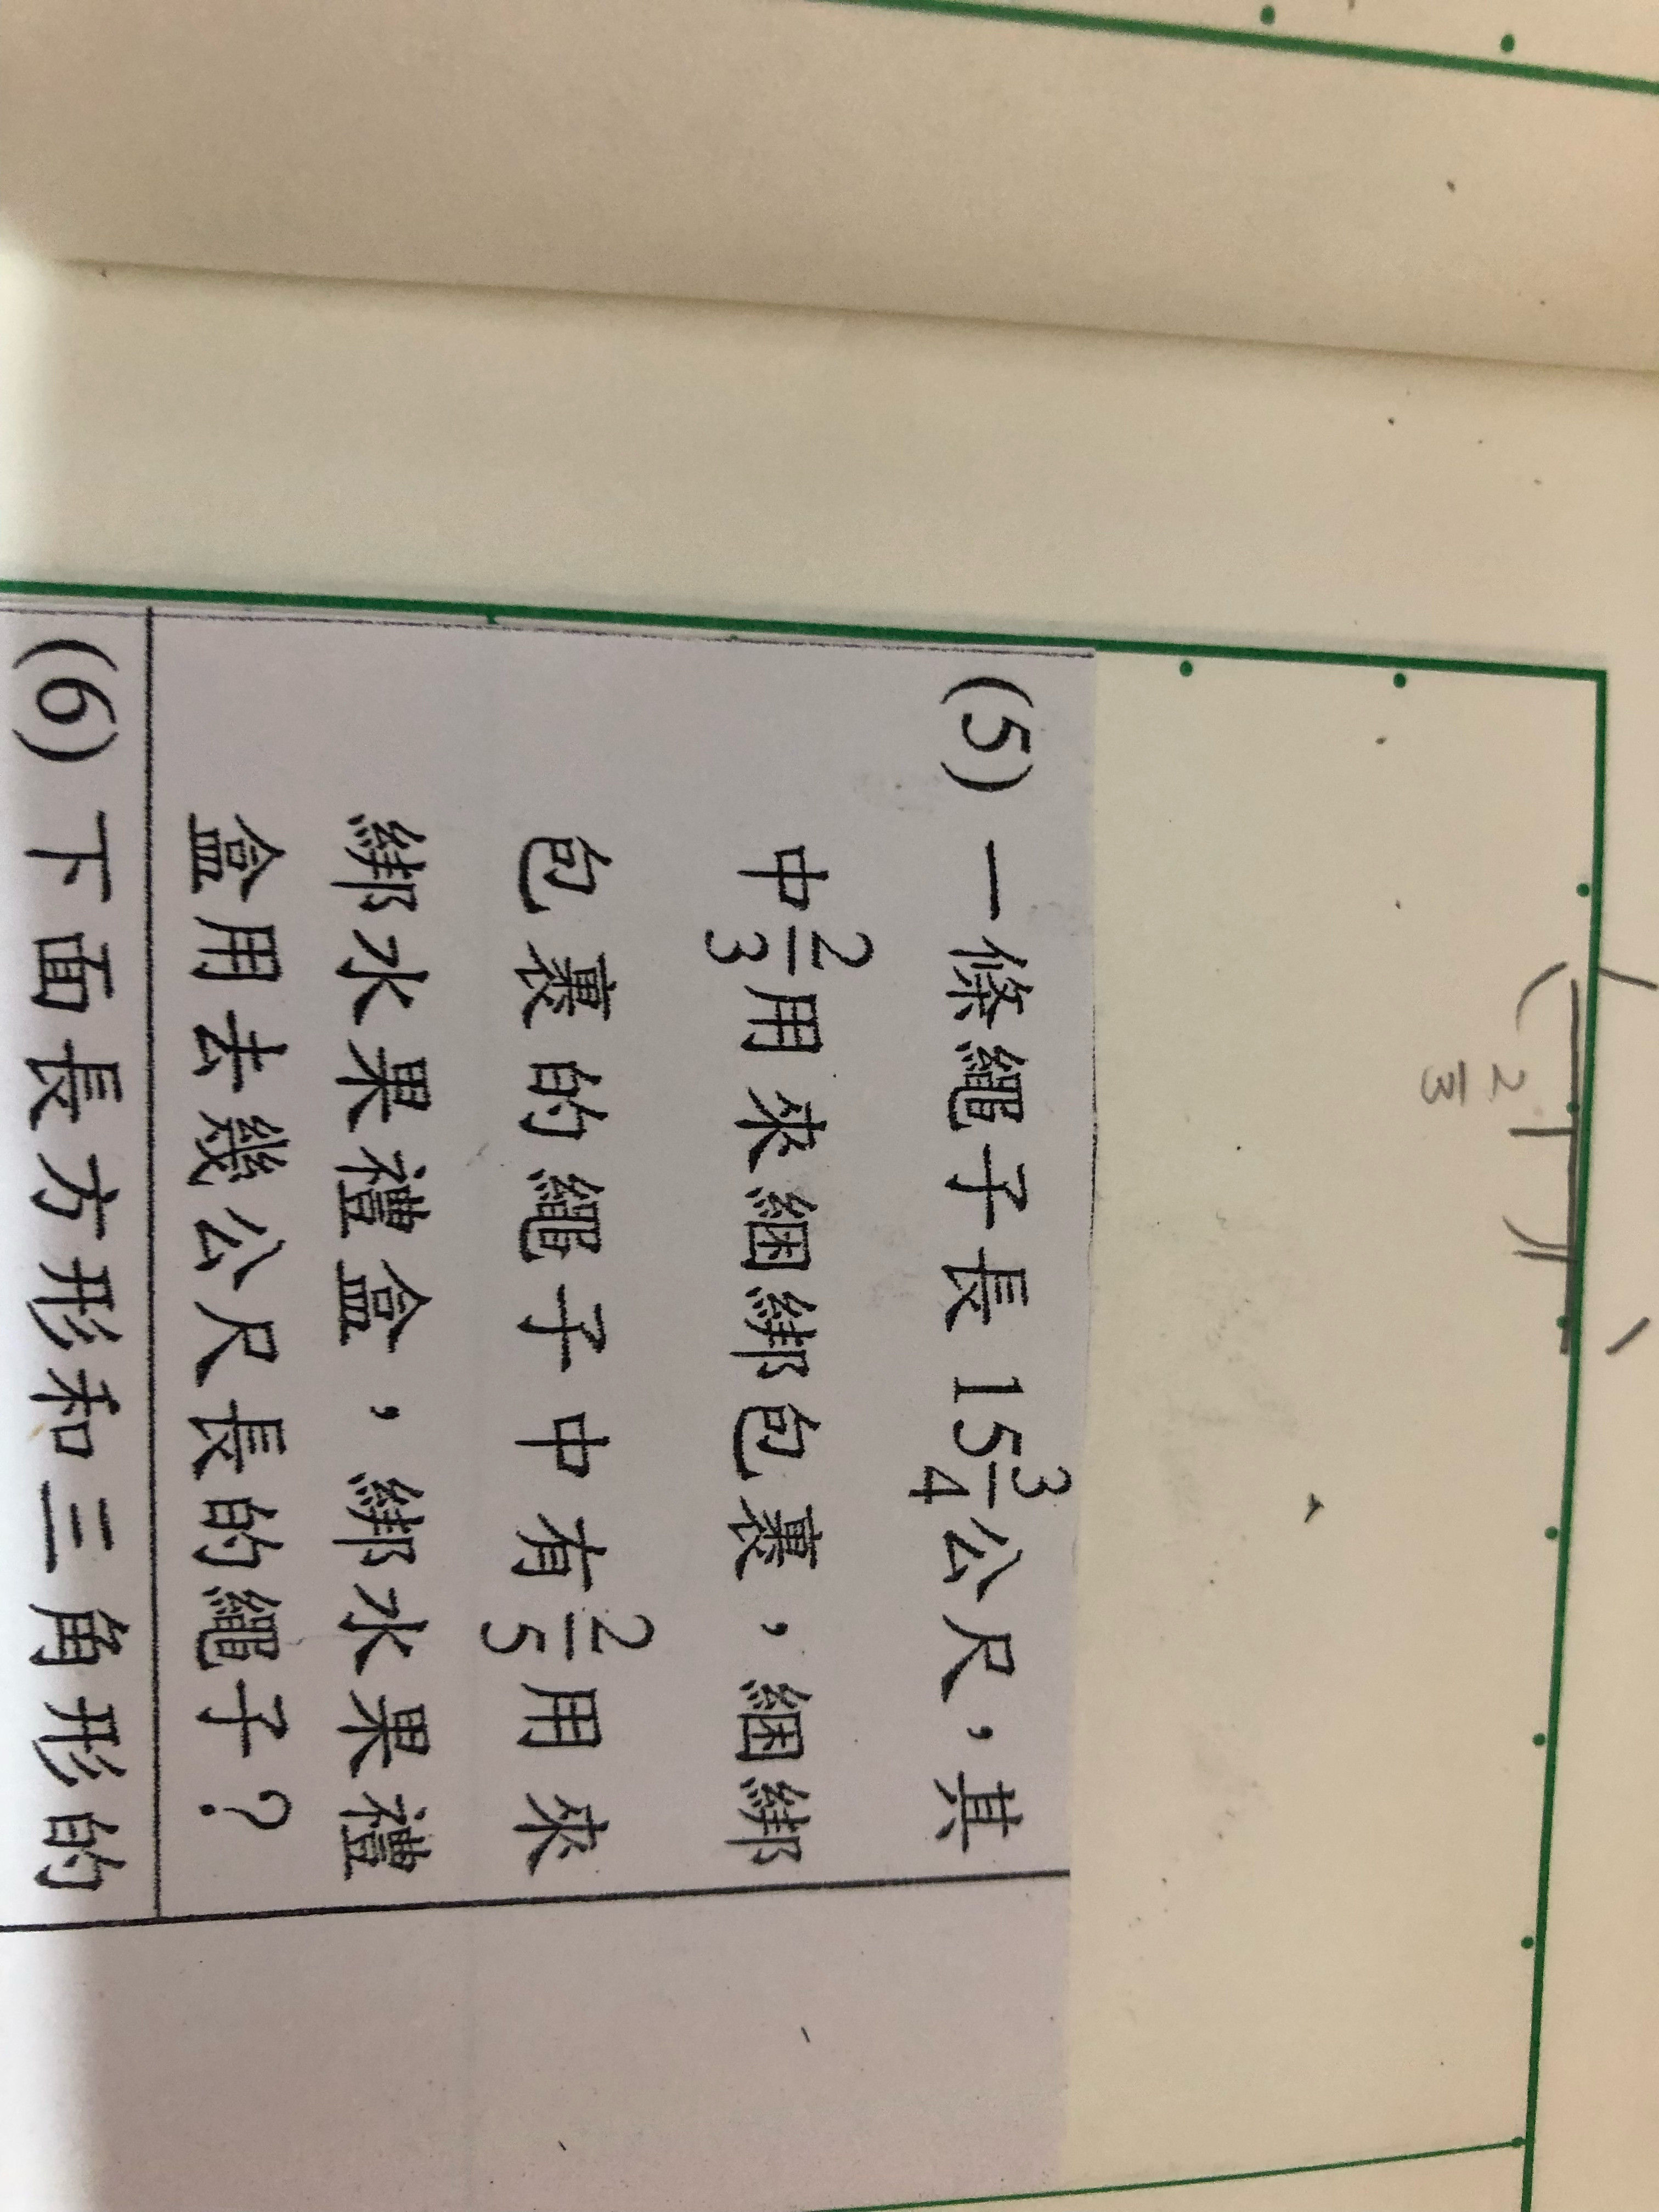 2/3
(5) 一條繩子長 15 3/4 公尺，其
中 2/3 用來綑綁包裹，綑綁
包裹的繩子中有 2/5 用來
綁水果禮盒，綁水果禮
盒用去幾公尺長的繩子？
(6) 下面長方形和三角形的